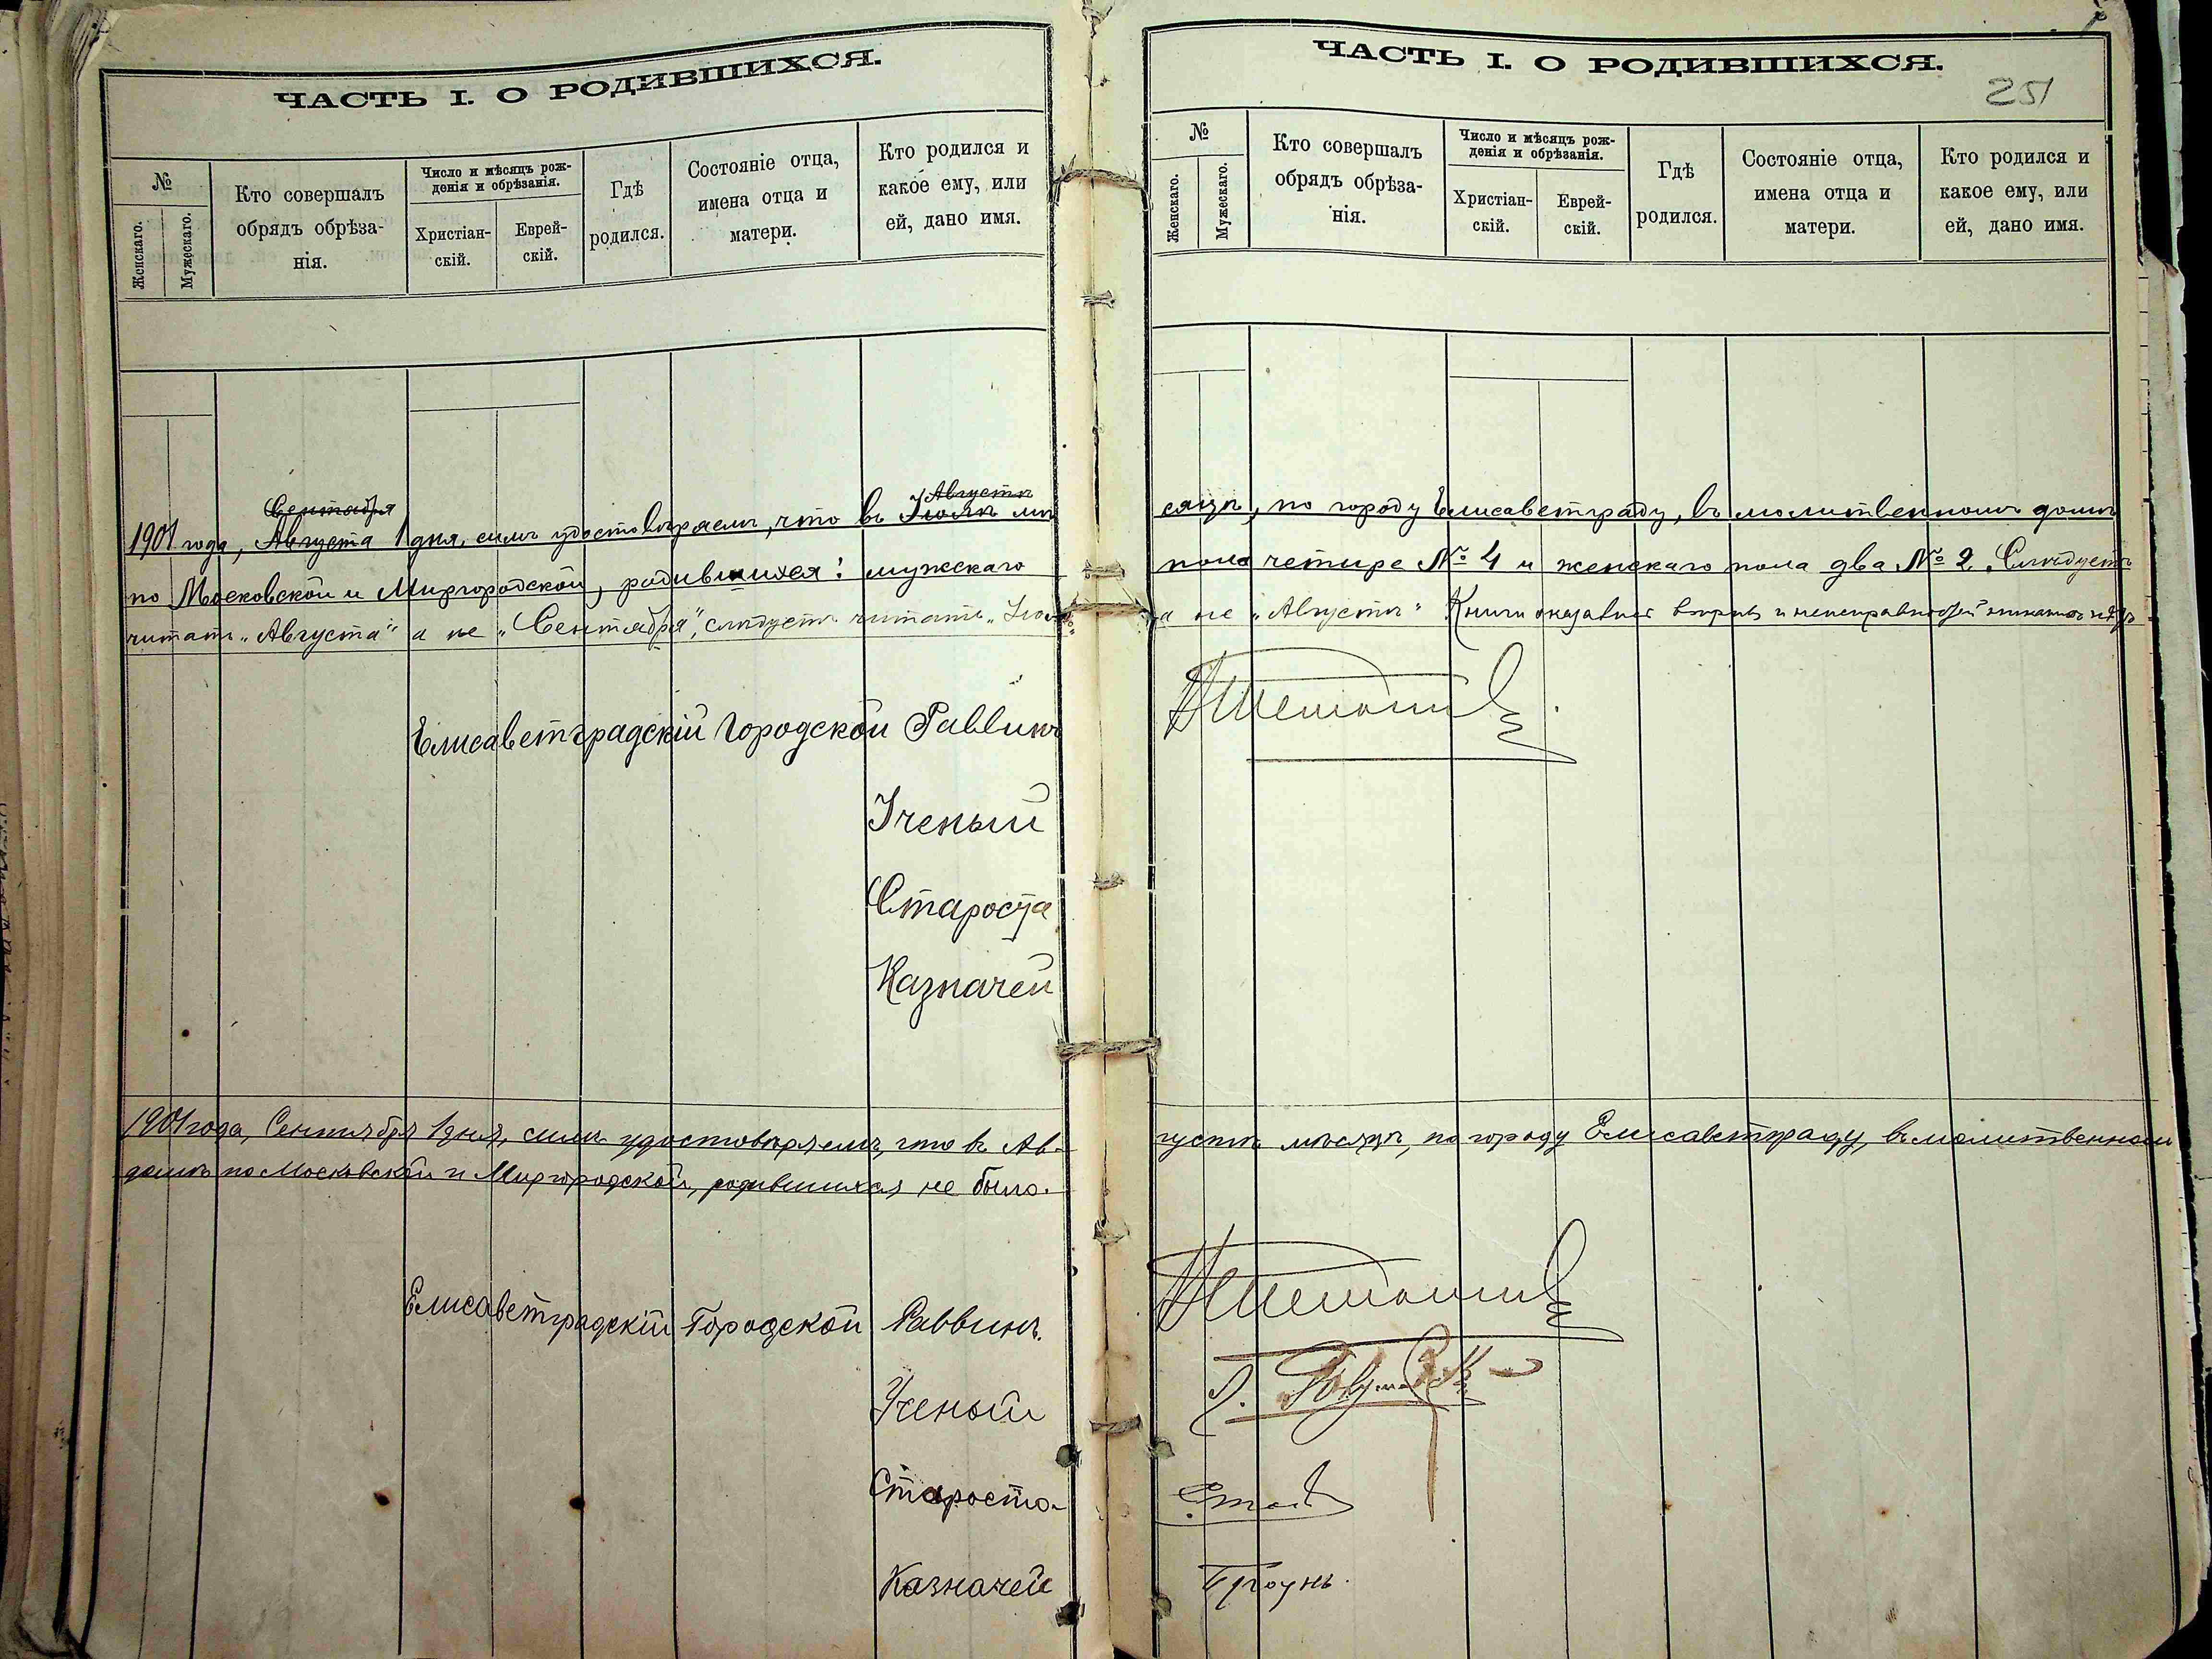 ЧАСТЬ I. О РОДИВШИХСЯ.
№
Женскаго.
Мужескаго.
Кто совершалъ
обрядъ обрѣза-
нія.
Число и мѣсяцъ рож-
денія и обрѣзанія.
Христіан-
скій.
Еврей-
скій.
Гдѣ
родился.
Состояніе отца,
имена отца и
матери.
Кто родился и
какое ему, или
ей, дано имя.
Сентября
Августѣ
1901 года, Августа 1 дня, симъ удостовѣряемъ, что въ Іюлѣ мѣ
по Московской и Миргородской, родившихся: мужскаго
читать „Августа" а не „Сентября", слѣдуетъ читать „Іюлѣ"
Елисаветградскій Городской Раввинъ
Ученый
Староста
Казначей
1901 года, Сентября 1 дня, симъ удостовѣряемъ, что въ Ав-
домѣ по Московской и Миргородской, родившихся не было.
Елисаветградскій Городской Раввинъ.
Ученый
Староста
Казначей
ЧАСТЬ I. О РОДИВШИХСЯ.
251
№
Женскаго.
Мужескаго.
Кто совершалъ
обрядъ обрѣза-
нія.
Число и мѣсяцъ рож-
денія и обрѣзанія.
Христіан-
скій.
Еврей-
скій.
Гдѣ
родился.
Состояніе отца,
имена отца и
матери.
Кто родился и
какое ему, или
ей, дано имя.
сяцѣ, по городу Елисаветграду, въ молитвенномъ домѣ
пола четыре № 4 и женскаго пола два № 2. Слѣдуетъ
а не „Августѣ" Книги оказались
густѣ мѣсяцѣ, по городу Елисаветграду, въ молитвенномъ